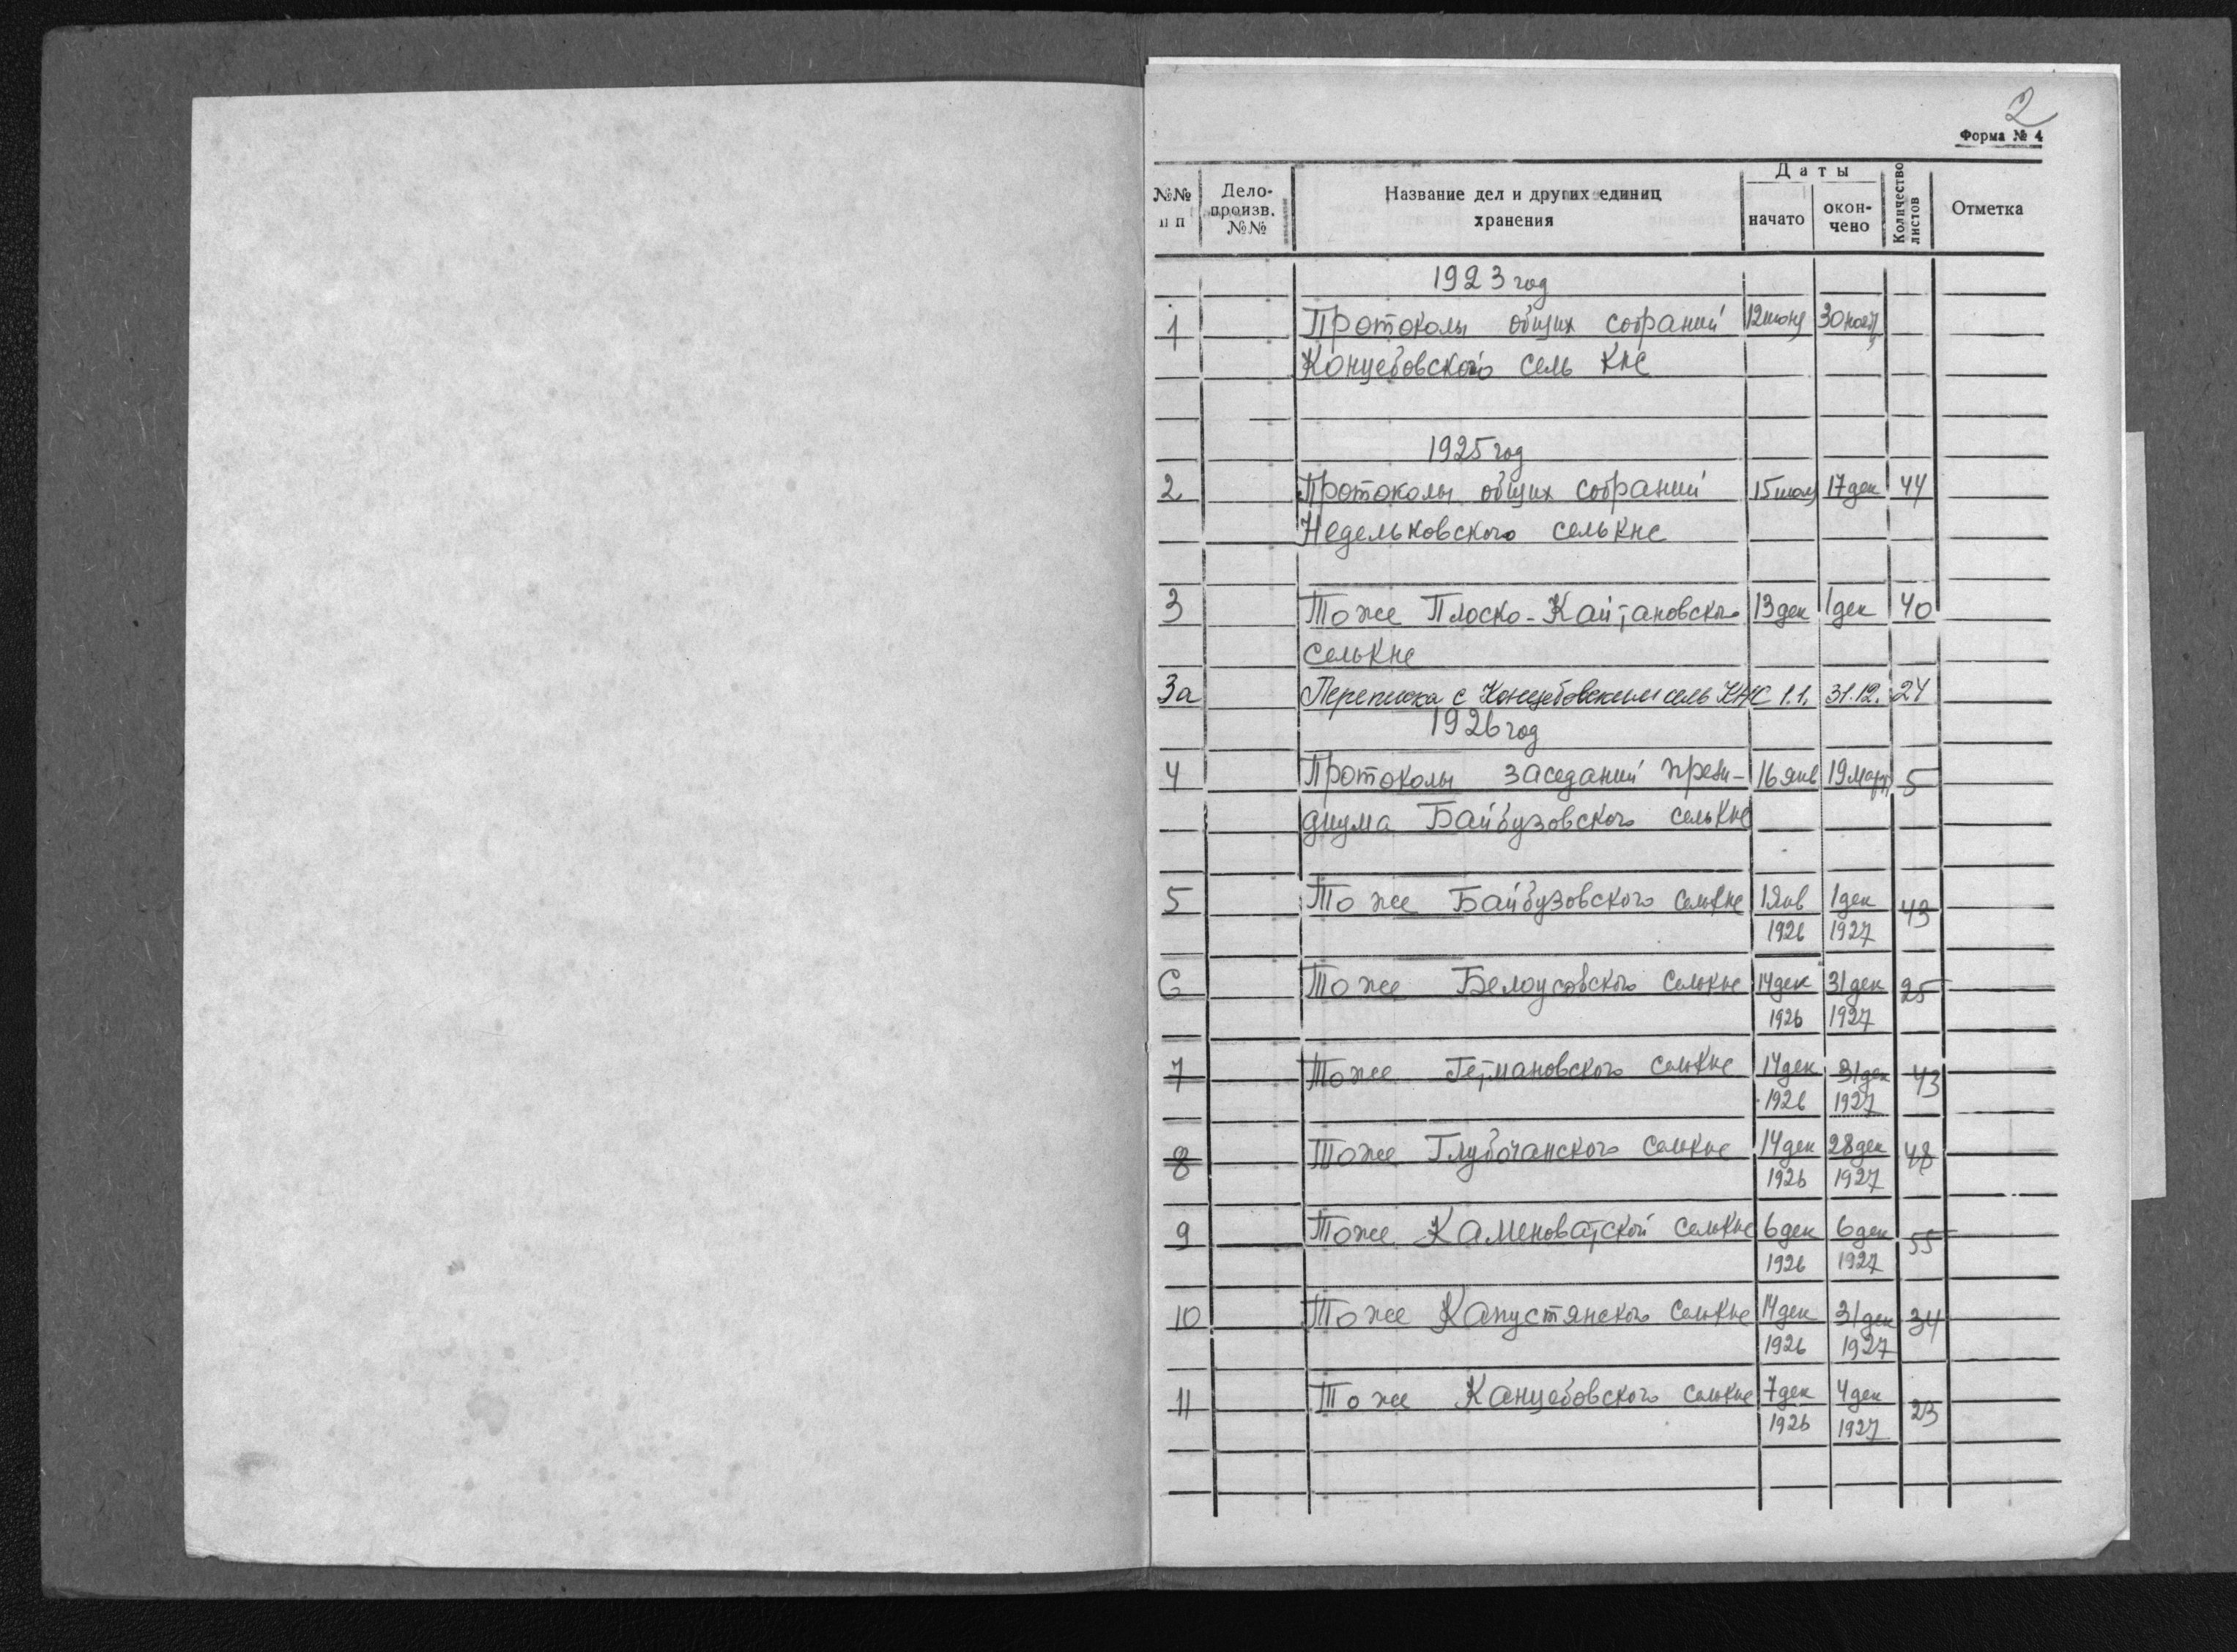 2
Форма № 4
№№ п п | Дело-произв. №№ | Название дел и других единиц хранения | Даты начато | окон-чено | Количество листов | Отметка
1923 год
1 Протоколы общих собраний 12 июня 30 нояб
Концебовского сель КНС
1925 год
2 Протоколы общих собраний 15 17 дек 44
Недельковского сельКНС
3 То же Плоско-Кайтановского 13 дек 1 дек 40
сельКНС
3а Переписка с Концебовским сель КНС 1.1. 31.12. 24
1926 год
4 Протоколы заседаний прези- 16 янв 19 март 5
диума Байбузовского сельКНС
5 То же Байбузовского сельКНС 1 янв 1 дек 43
1926 1927
6 То же Белоусовского сельКНС 14 дек 31 дек 25
1926 1927
7 То же Гетмановского сельКНС 14 дек 31 дек 43
1926 1927
8 То же Глубочанского сельКНС 14 дек 28 дек 48
1926 1927
9 То же Каменоватской сельКНС 6 дек 6 дек 55
1926 1927
10 То же Капустянского сельКНС 14 дек 31 дек 34
1926 1927
11 То же Канцебовского сельКНС 7 дек 4 дек 23
1926 1927